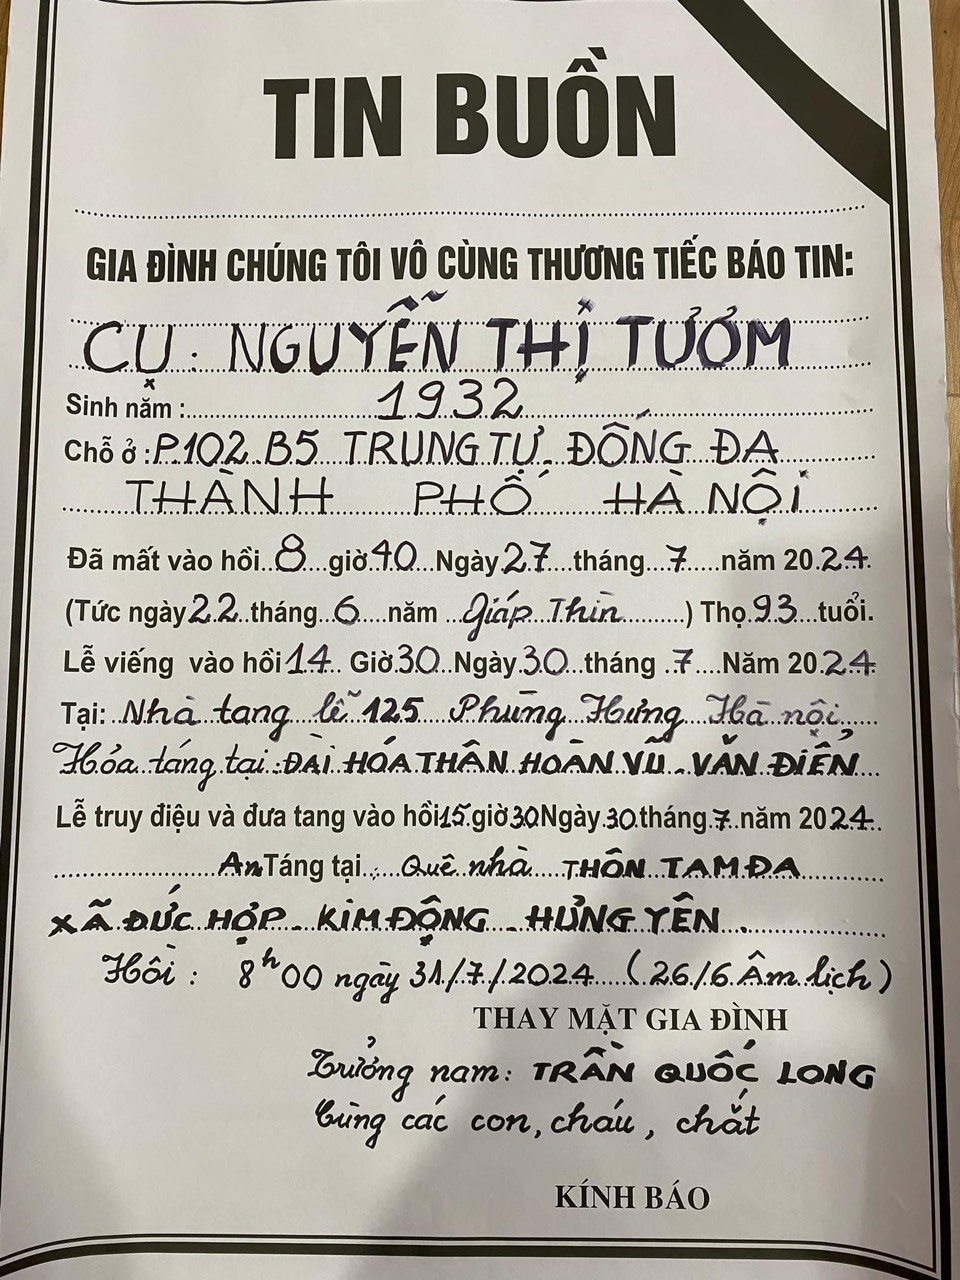 TIN BUỒN
GIA ĐÌNH CHÚNG TÔI VÔ CÙNG THƯƠNG TIẾC BÁO TIN:
CỤ: NGUYỄN THỊ TƯƠM
Sinh năm: 1932
Chỗ ở: P.102 B5 TRUNG TỰ ĐỐNG ĐA
THÀNH PHỐ HÀ NỘI
Đã mất vào hồi 8 giờ 40 Ngày 27 tháng 7 năm 2024
(Tức ngày 22 tháng 6 năm Giáp Thìn ) Thọ 93 tuổi.
Lễ viếng vào hồi 14 Giờ 30 Ngày 30 tháng 7 Năm 2024
Tại: Nhà tang lễ 125 Phùng Hưng Hà nội
Hỏa táng tại: ĐÀI HÓA THÂN HOÀN VŨ - VĂN ĐIỂN
Lễ truy điệu và đưa tang vào hồi 15 giờ 30 Ngày 30 tháng 7 năm 2024
An Táng tại: Quê nhà THÔN TAM ĐA
XÃ ĐỨC HỢP - KIM ĐỘNG - HƯNG YÊN.
Hồi: 8h00 ngày 31/7/2024 (26/6 Âm lịch)
THAY MẶT GIA ĐÌNH
Trưởng nam: TRẦN QUỐC LONG
Cùng các con, cháu, chắt
KÍNH BÁO